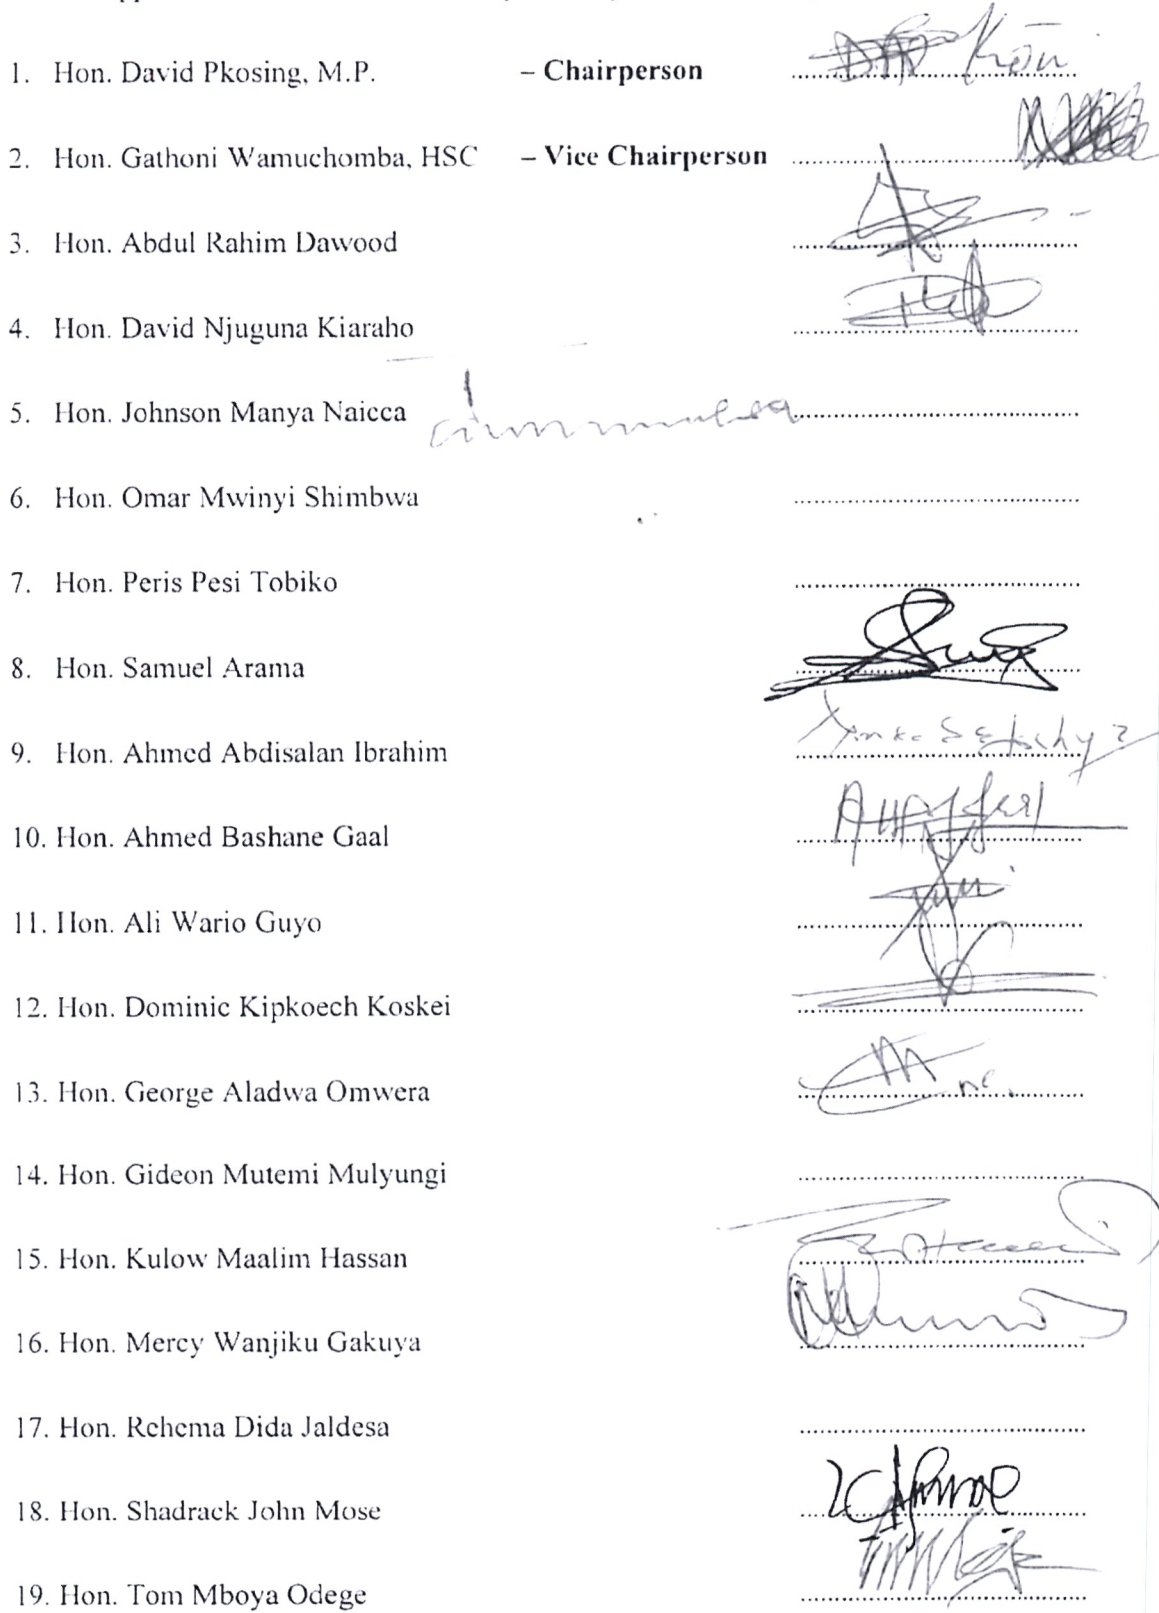 1. Hon. David Pkosing, M.P. – Chairperson
2. Hon. Gathoni Wamuchomba, HSC – Vice Chairperson
3. Hon. Abdul Rahim Dawood
4. Hon. David Njuguna Kiaraho
5. Hon. Johnson Manya Naicca
6. Hon. Omar Mwinyi Shimbwa
7. Hon. Peris Pesi Tobiko
8. Hon. Samuel Arama
9. Hon. Ahmed Abdisalan Ibrahim
10. Hon. Ahmed Bashane Gaal
11. Hon. Ali Wario Guyo
12. Hon. Dominic Kipkoech Koskei
13. Hon. George Aladwa Omwera
14. Hon. Gideon Mutemi Mulyungi
15. Hon. Kulow Maalim Hassan
16. Hon. Mercy Wanjiku Gakuya
17. Hon. Rehema Dida Jaldesa
18. Hon. Shadrack John Mose
19. Hon. Tom Mboya Odege